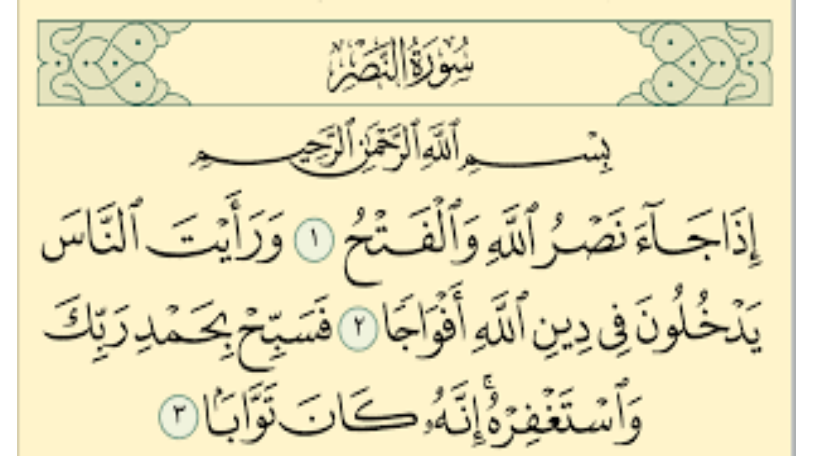 سُورَةُ النَّصۡرِ
بِسۡمِ ٱللَّهِ ٱلرَّحۡمَٰنِ ٱلرَّحِيمِ
إِذَا جَآءَ نَصۡرُ ٱللَّهِ وَٱلۡفَتۡحُ ١ وَرَأَيۡتَ ٱلنَّاسَ
يَدۡخُلُونَ فِي دِينِ ٱللَّهِ أَفۡوَاجٗا ٢ فَسَبِّحۡ بِحَمۡدِ رَبِّكَ
وَٱسۡتَغۡفِرۡهُۚ إِنَّهُۥ كَانَ تَوَّابَۢا ٣